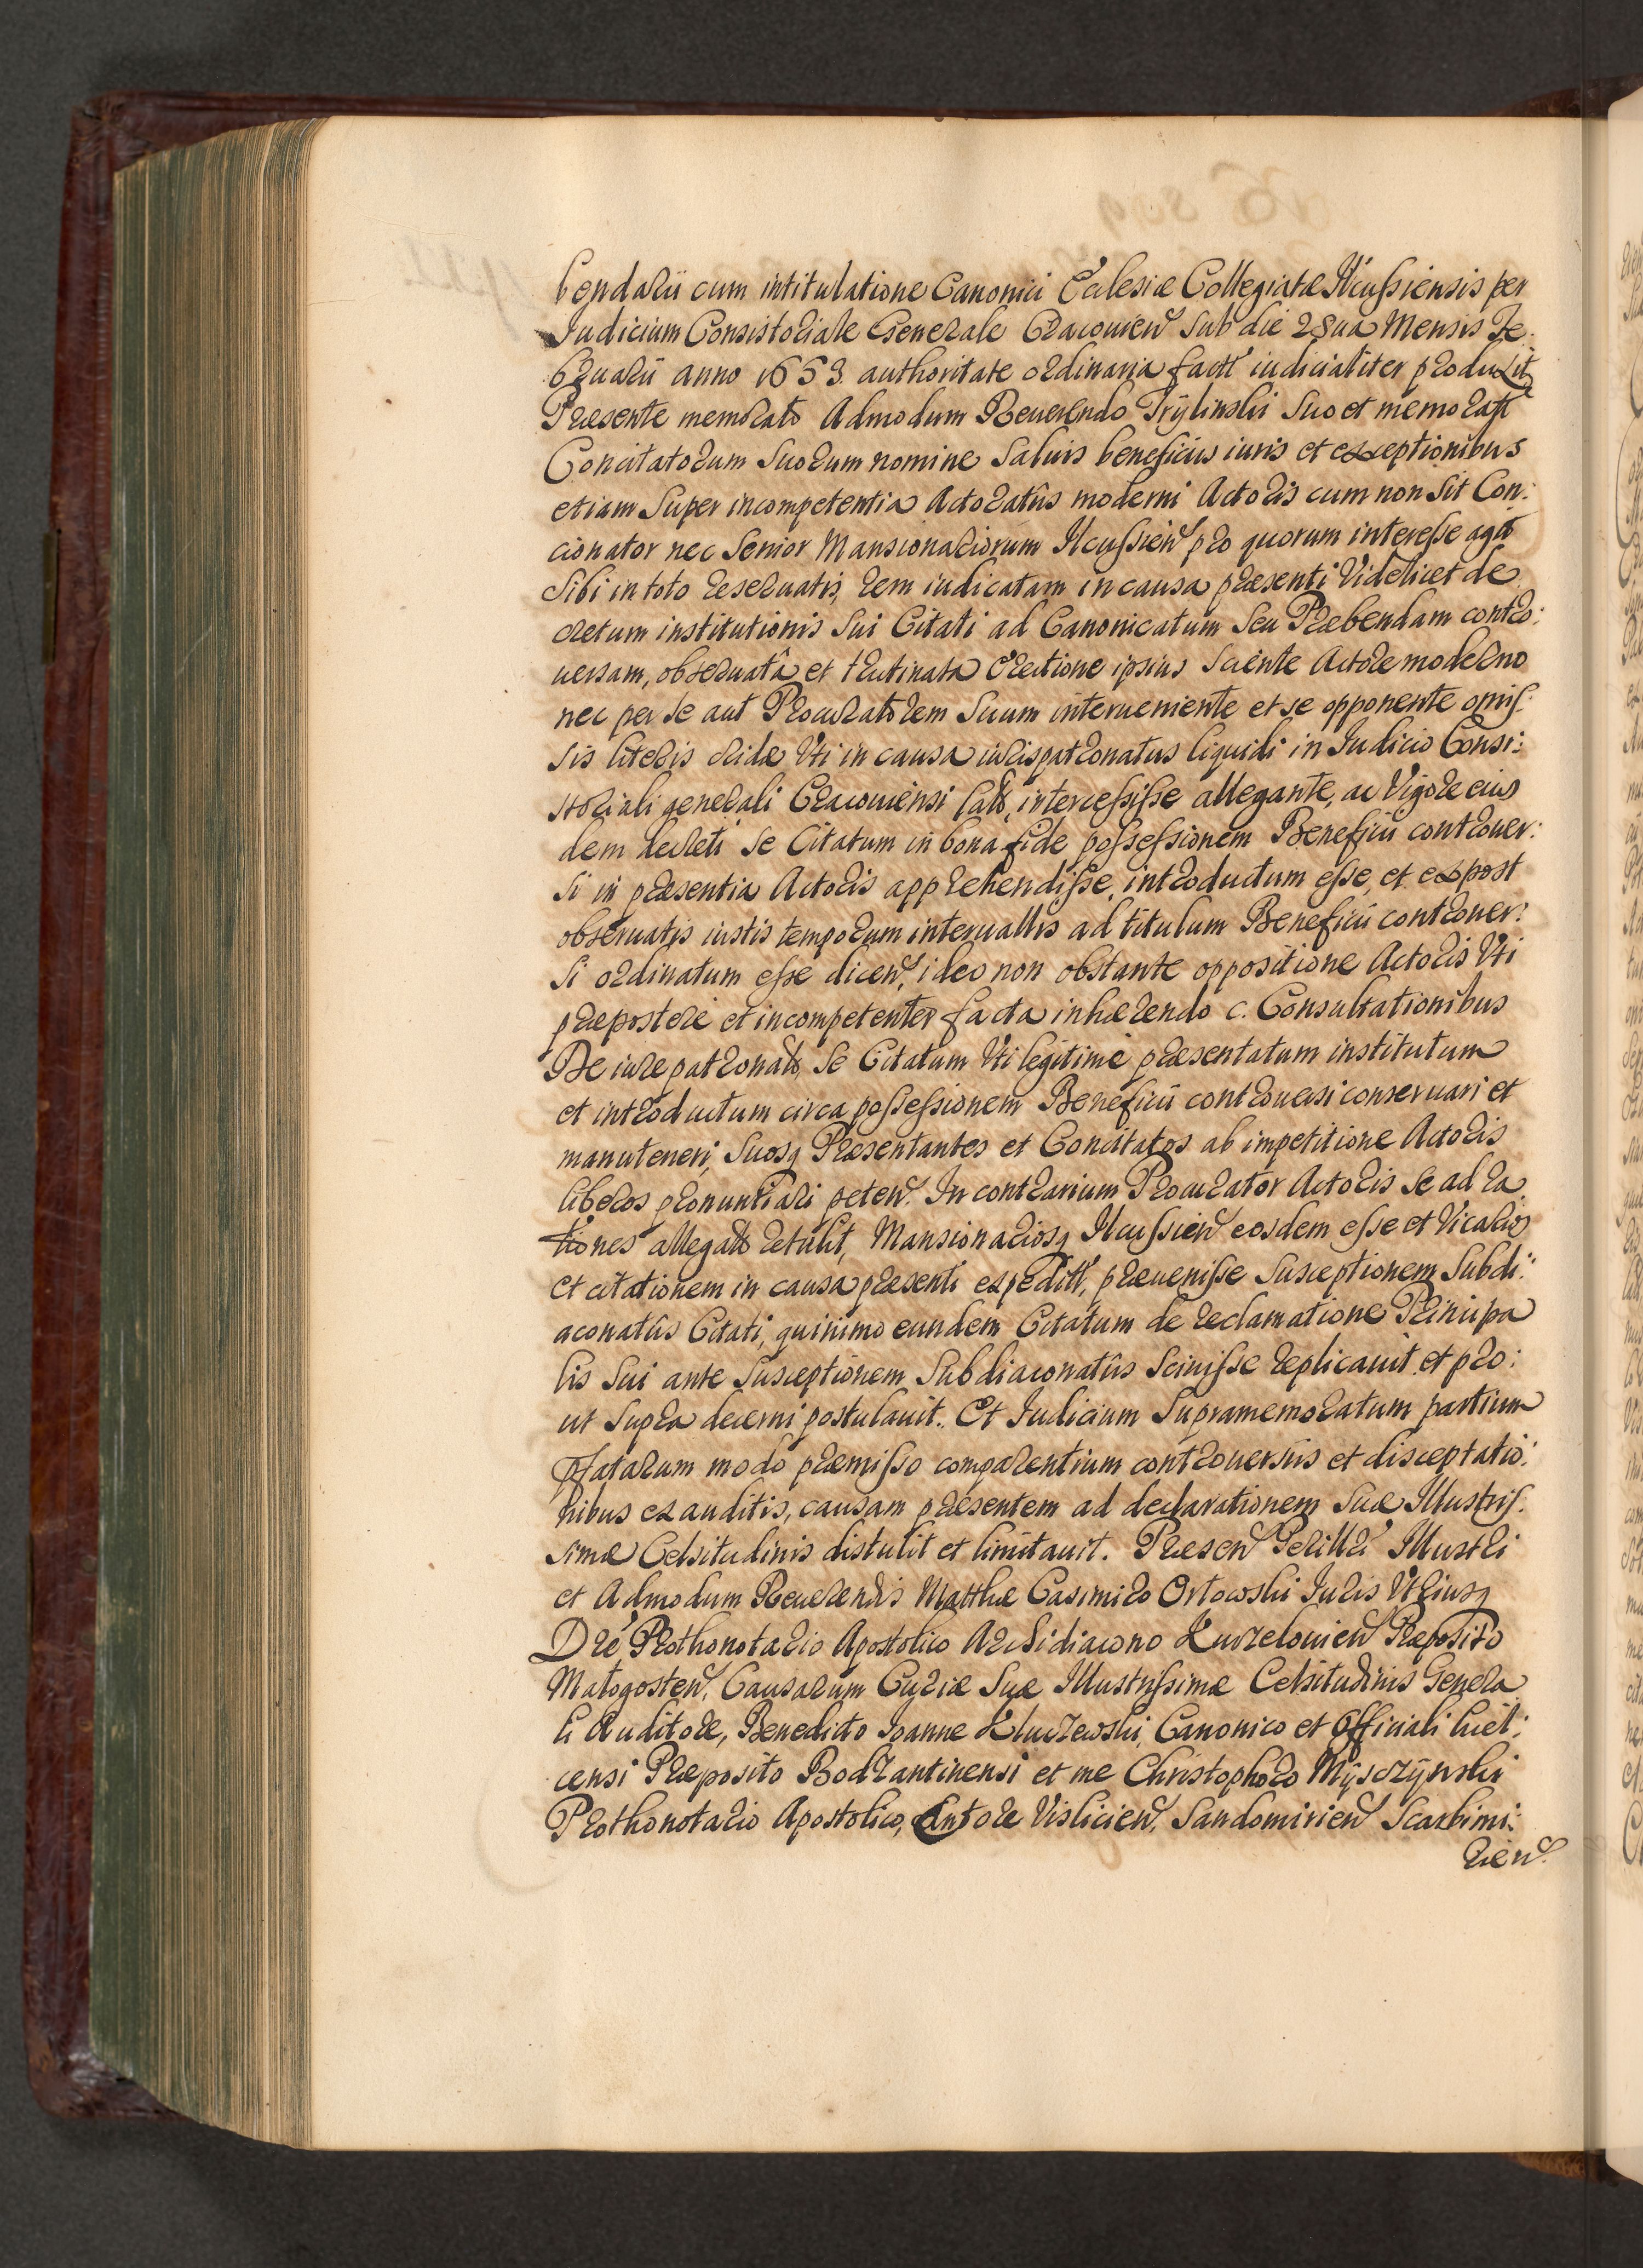 bendarii cum intitulatione Canonici Ecclesiæ Collegiatæ Ilcussiensis per
Iudicium Consistoriale Generale Cracouien sub die 28ua Mensis Fe:
bruarii anno 1653 authoritate ordinaria fact iudicialiter produxit
Præsente memorato Admodum Reuerendo Tryliński suo et memorat
Concitatorum suorum nomine saluis beneficiis iuris et exceptionibus
etiam super incompetentia Actoratûs moderni Actoris cum non sit Con:
cionator nec senior Mansionariorum Ilcussien pro quorum interesse agit
sibi in toto reseruatis, rem iudicatam in causa præsenti Videlicet de
cretum institutionis sui Citati ad Canonicatum seu Præbendam contro:
uersam, obseruatâ et trutinata Erectione ipsius sciente Actore moderno
nec per se aut Procuratorem suum interueniente et se opponente omis:
sis literis cridæ Vti in causa iurispatronatus liquidi in Iudicio Consi:
storiali generali Cracouiensi lato, intercessisse allegante, ac Vigore eius
dem decreti se Citatum in bona fide possessionem Beneficii controuer:
si in præsentia Actoris apprehendisse, introductum esse, et expost
obseruatis iustis temporum interuallis ad titulum Beneficii controuer:
si ordinatum esse dicen, ideo non obstante oppositione Actoris Vti
præpostere et incompetenter facta inhærendo c. Consultationibus
De iure patronatus, se Citatum Vti legitime præsentatum institutum
et introductum circa possessionem Beneficii controuersi conseruari et
manuteneri, suosq Præsentantes et Concitatos ab impetitione Actoris
liberos pronuntiari peten. In contrarium Procurator Actoris se ad ra
tiones allegatas retulit, Mansionariosq Ilcussien eosdem esse et Vicarios
et citationem in causa præsenti expeditt, præuenisse susceptionem Subdi:
aconatûs Citati, quinimo eundem Citatum de reclamatione Principa
lis sui ante susceptionem Subdiaconatûs sciuisse replicauit et pro:
ut supra decerni postulauit. Et Iudicium supramemoratum partium
pfatarum modo præmisso comparentium controuersiis et disceptatio:
nibus exauditis, causam præsentem ad declarationem suæ Illustris:
simæ Celsitudinis distulit et limitauit. Præsen Perilltri Illustri
et Admodum Reuerendis Matthæ Casimiro Orłowski Iuris Vtriusq
Dre Prothonotario Apostolico Archidiacono Kurzelouien Præposito
Małogosten, Causarum Curiæ suæ Illustrissimæ Celsitudinis Genera
li Auditore, Benedicto Ioanne Kluczewski, Canonico et Officiali Kiel:
censi Præposito Bodzantinensi et me Christophoro Mysczynski
Prothonotario Apostolico, Cantore Vislicien, Sandomirien Scarbimi:
rien